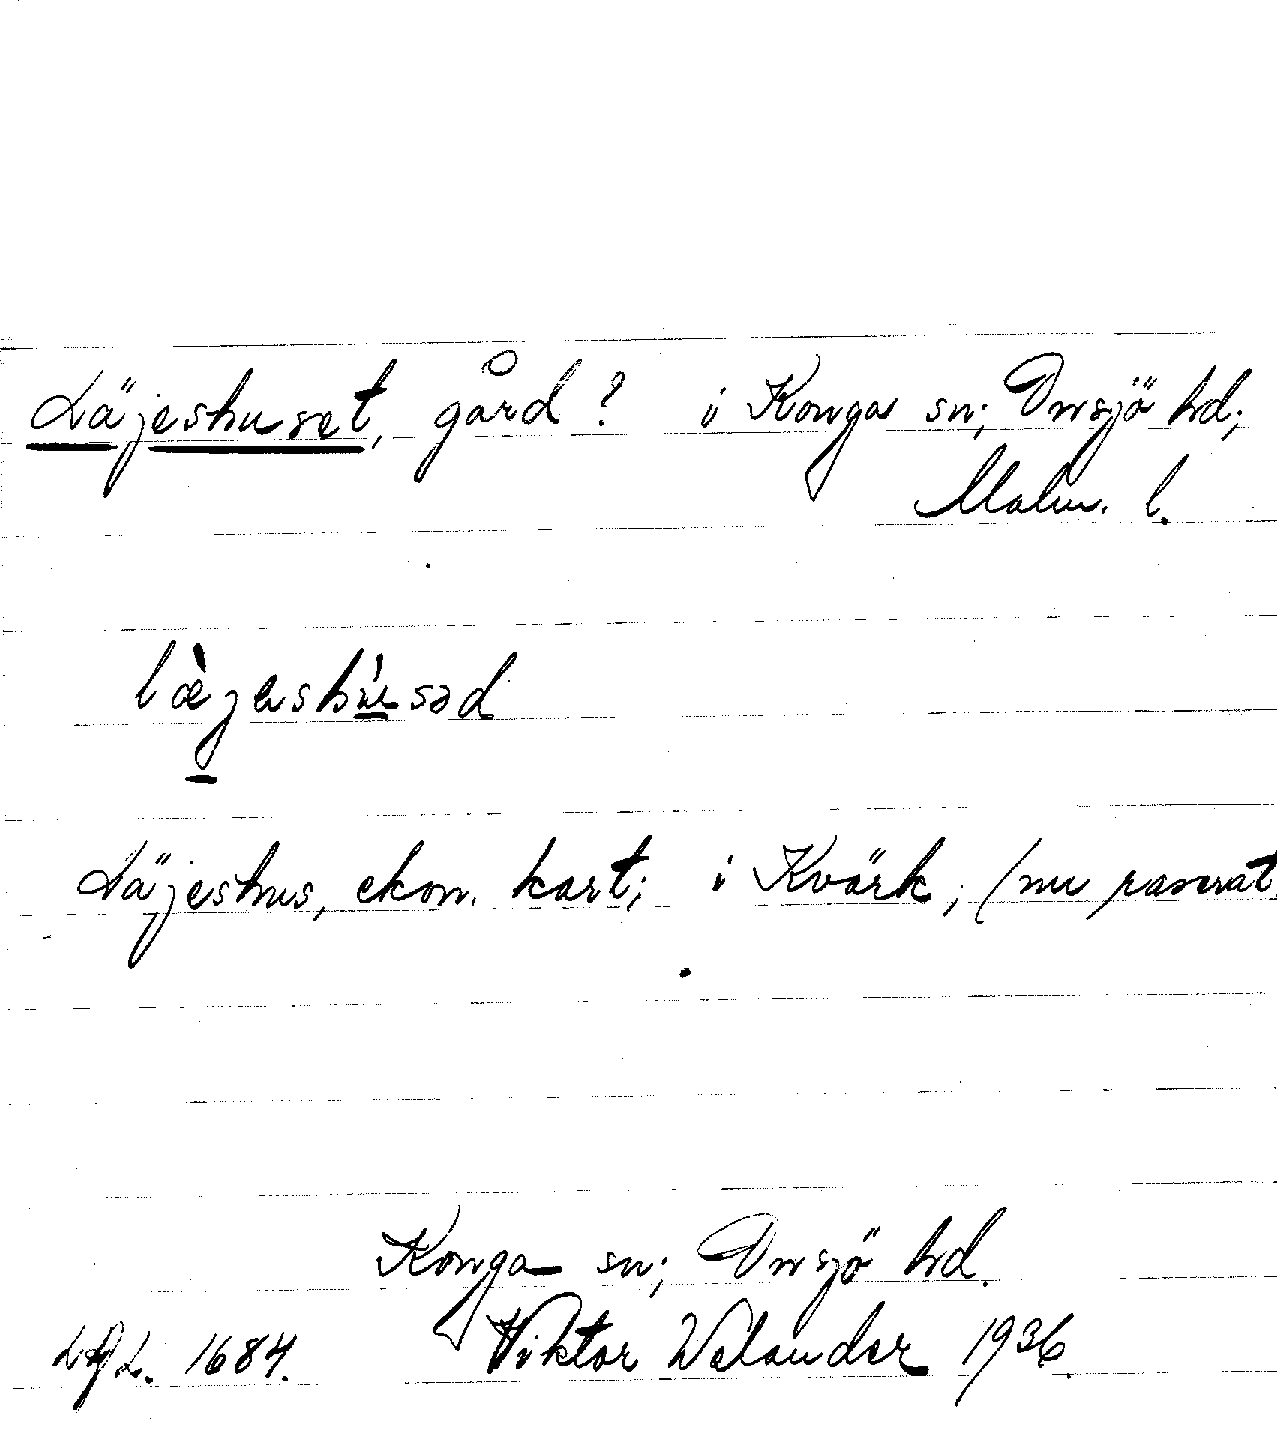 Läjeshuset, gård? i Konga sn; Onsjö hd;
Malm. l.
Läjeshus, ekon. kart; i Kvärk; (nu raserat
Konga sn; Onsjö hd.
1684. Viktor Welander 1936.